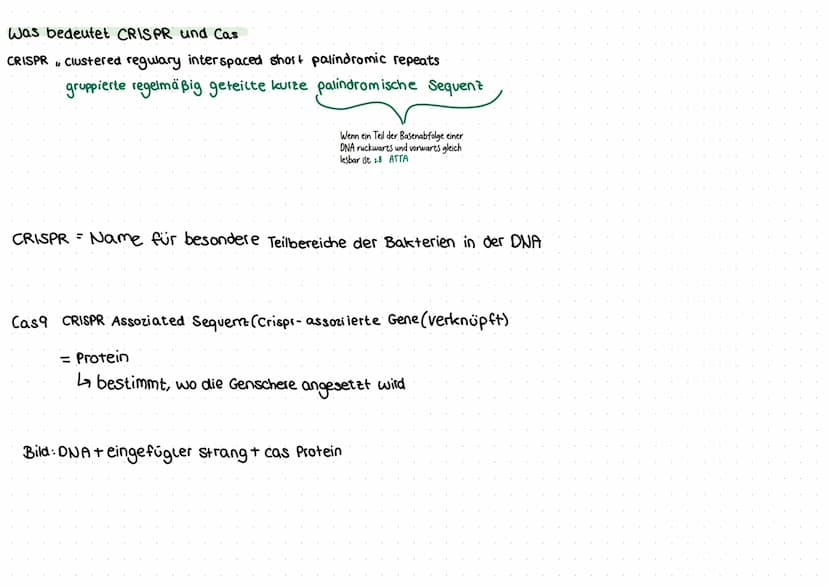 Was bedeutet CRISPR und Cas
CRISPR „ clustered regulary interspaced short palindromic repeats
gruppierte regelmäßig geteilte kurze palindromische Sequenz
Wenn ein Teil der Basenabfolge einer
DNA ruckwarts und vorwarts gleich
lesbar ist z.B ATTA
CRISPR = Name für besondere Teilbereiche der Bakterien in der DNA
Cas9 CRISPR Assoziated Sequenz (Crispr-assoziierte Gene (verknüpft)
= Protein
↳ bestimmt, wo die Genschere angesetzt wird
Bild: DNA + eingefügter Strang + cas Protein